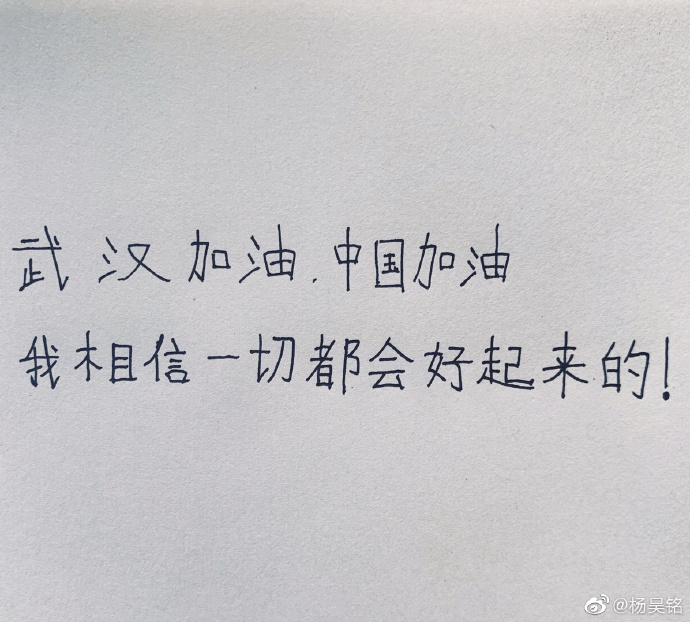 武汉加油.中国加油
我相信一切都会好起来的!
@杨吴铭